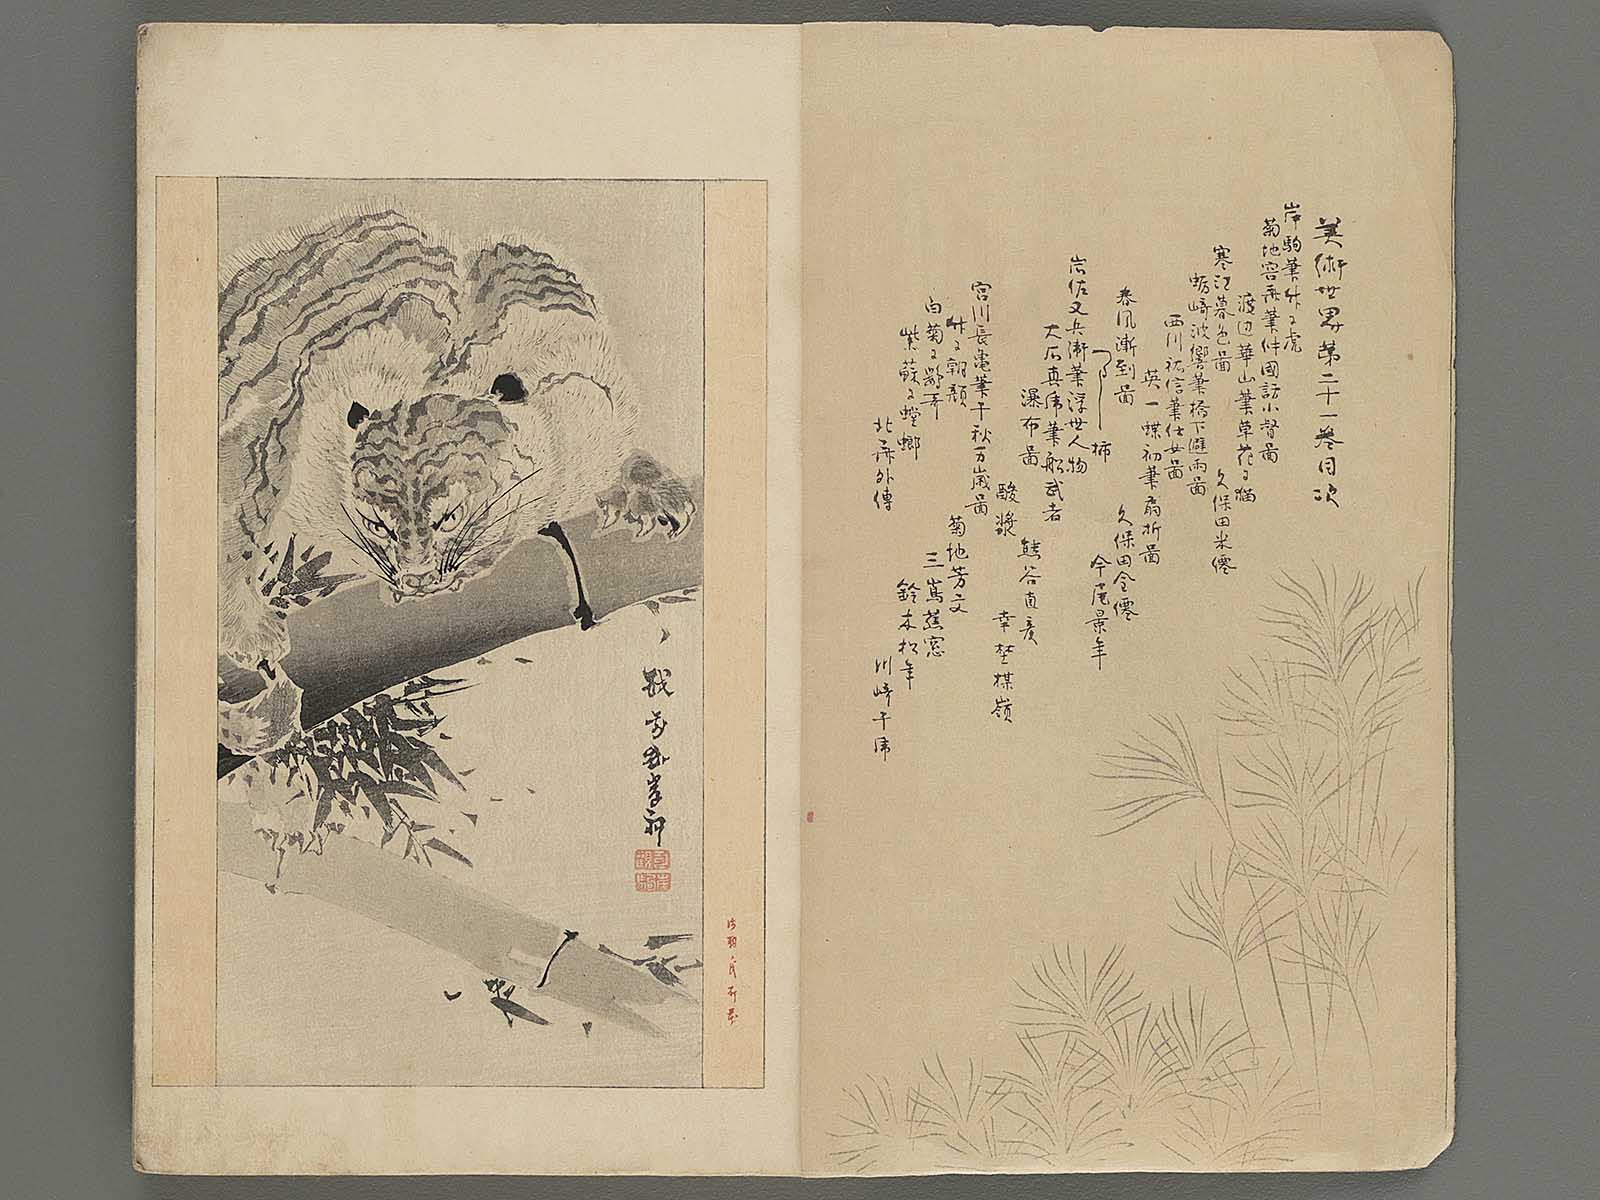 美術世界第二十一卷目次
岸駒筆竹に虎
菊地容斎筆件國訪小督圖
渡辺華山筆草花に猫
寒江暮色圖 久保田米僊
蛎崎波響筆橋下避雨圖
西川祐信筆仕女圖
英一蝶初筆扇折圖
春風漸到圖 久保田金僊
つるし柿 今尾景年
岩佐又兵衛筆浮世人物
大石真虎筆船武者
瀑布圖 熊谷直彦
酸漿 幸埜楳嶺
宮川長亀筆千秋万歳圖
竹に朝顔 菊地芳文
白菊に野牛 三嶌蕉窓
紫蘇に螳螂 鈴木松年
北斎外傳 川崎千虎